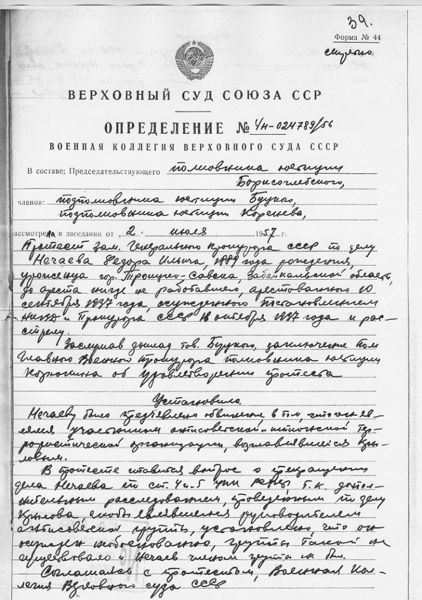 39.
Форма № 44
ВЕРХОВНЫЙ СУД СОЮЗА ССР
ОПРЕДЕЛЕНИЕ № 4н-024789/56
ВОЕННАЯ КОЛЛЕГИЯ ВЕРХОВНОГО СУДА СССР
В составе: Председательствующего полковника юстиции
Борисоглебского,
членов: подполковника юстиции Буцкого,
подполковника юстиции Коренева,
рассмотрела в заседании от 2 июля 1957 г.
Протест Зам. Генерального прокурора СССР по делу
Нечаева Федора Ильича, 1889 года рождения,
уроженца гор. Троицко-Савска, Забайкальской области,
до ареста нигде не работавшего, арестованного 10
сентября 1937 года, осужденного постановлением
НКВД и Прокурора СССР октября 1937 года к рас-
стрелу.
Заслушав доклад тов. Буцкого, заключение пом.
Главного Военного прокурора полковника юстиции
об удовлетворении протеста
Установила:
Нечаеву было предъявлено обвинение в том, что он яв-
лялся участником антисоветской японской тер-
рористической организации, возглавлявшейся
В протесте ставится вопрос о прекращении
дела Нечаева по ст. 4 п. 5 УПК РСФСР т.к. допол-
нительным расследованием, проведенным по делу
якобы являвшегося руководителем
антисоветской группы, установлено, что он
осужден необоснованно, группы такой не
существовало и Нечаев членом группы не был.
Соглашаясь с протестом, Военная Кол-
легия Верховного суда СССР